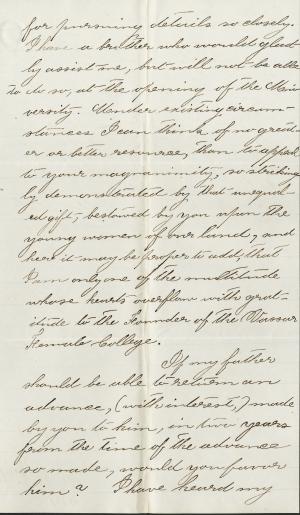 for pursuing details so closely.
I have a brother who would glad
ly assist me, but will not be able
to do so, at the opening of the Uni
versity. Under existing circum-
stances I can think of no great-
er or better resource, than to appeal
to your magnanimity, so striking
ly demonstrated by that unequal
ed gift, bestowed by you upon the
young women of our land, and
here it may be proper to add, that
I am only one of the multitude
whose hearts overflow with grat-
itude to the Founder of the Vassar
Female College.
If my father
should be able to return an
advance, (with interest,) made
by you to him, in two years
from the time of the advance
so made, would you favor
him? I have heard my